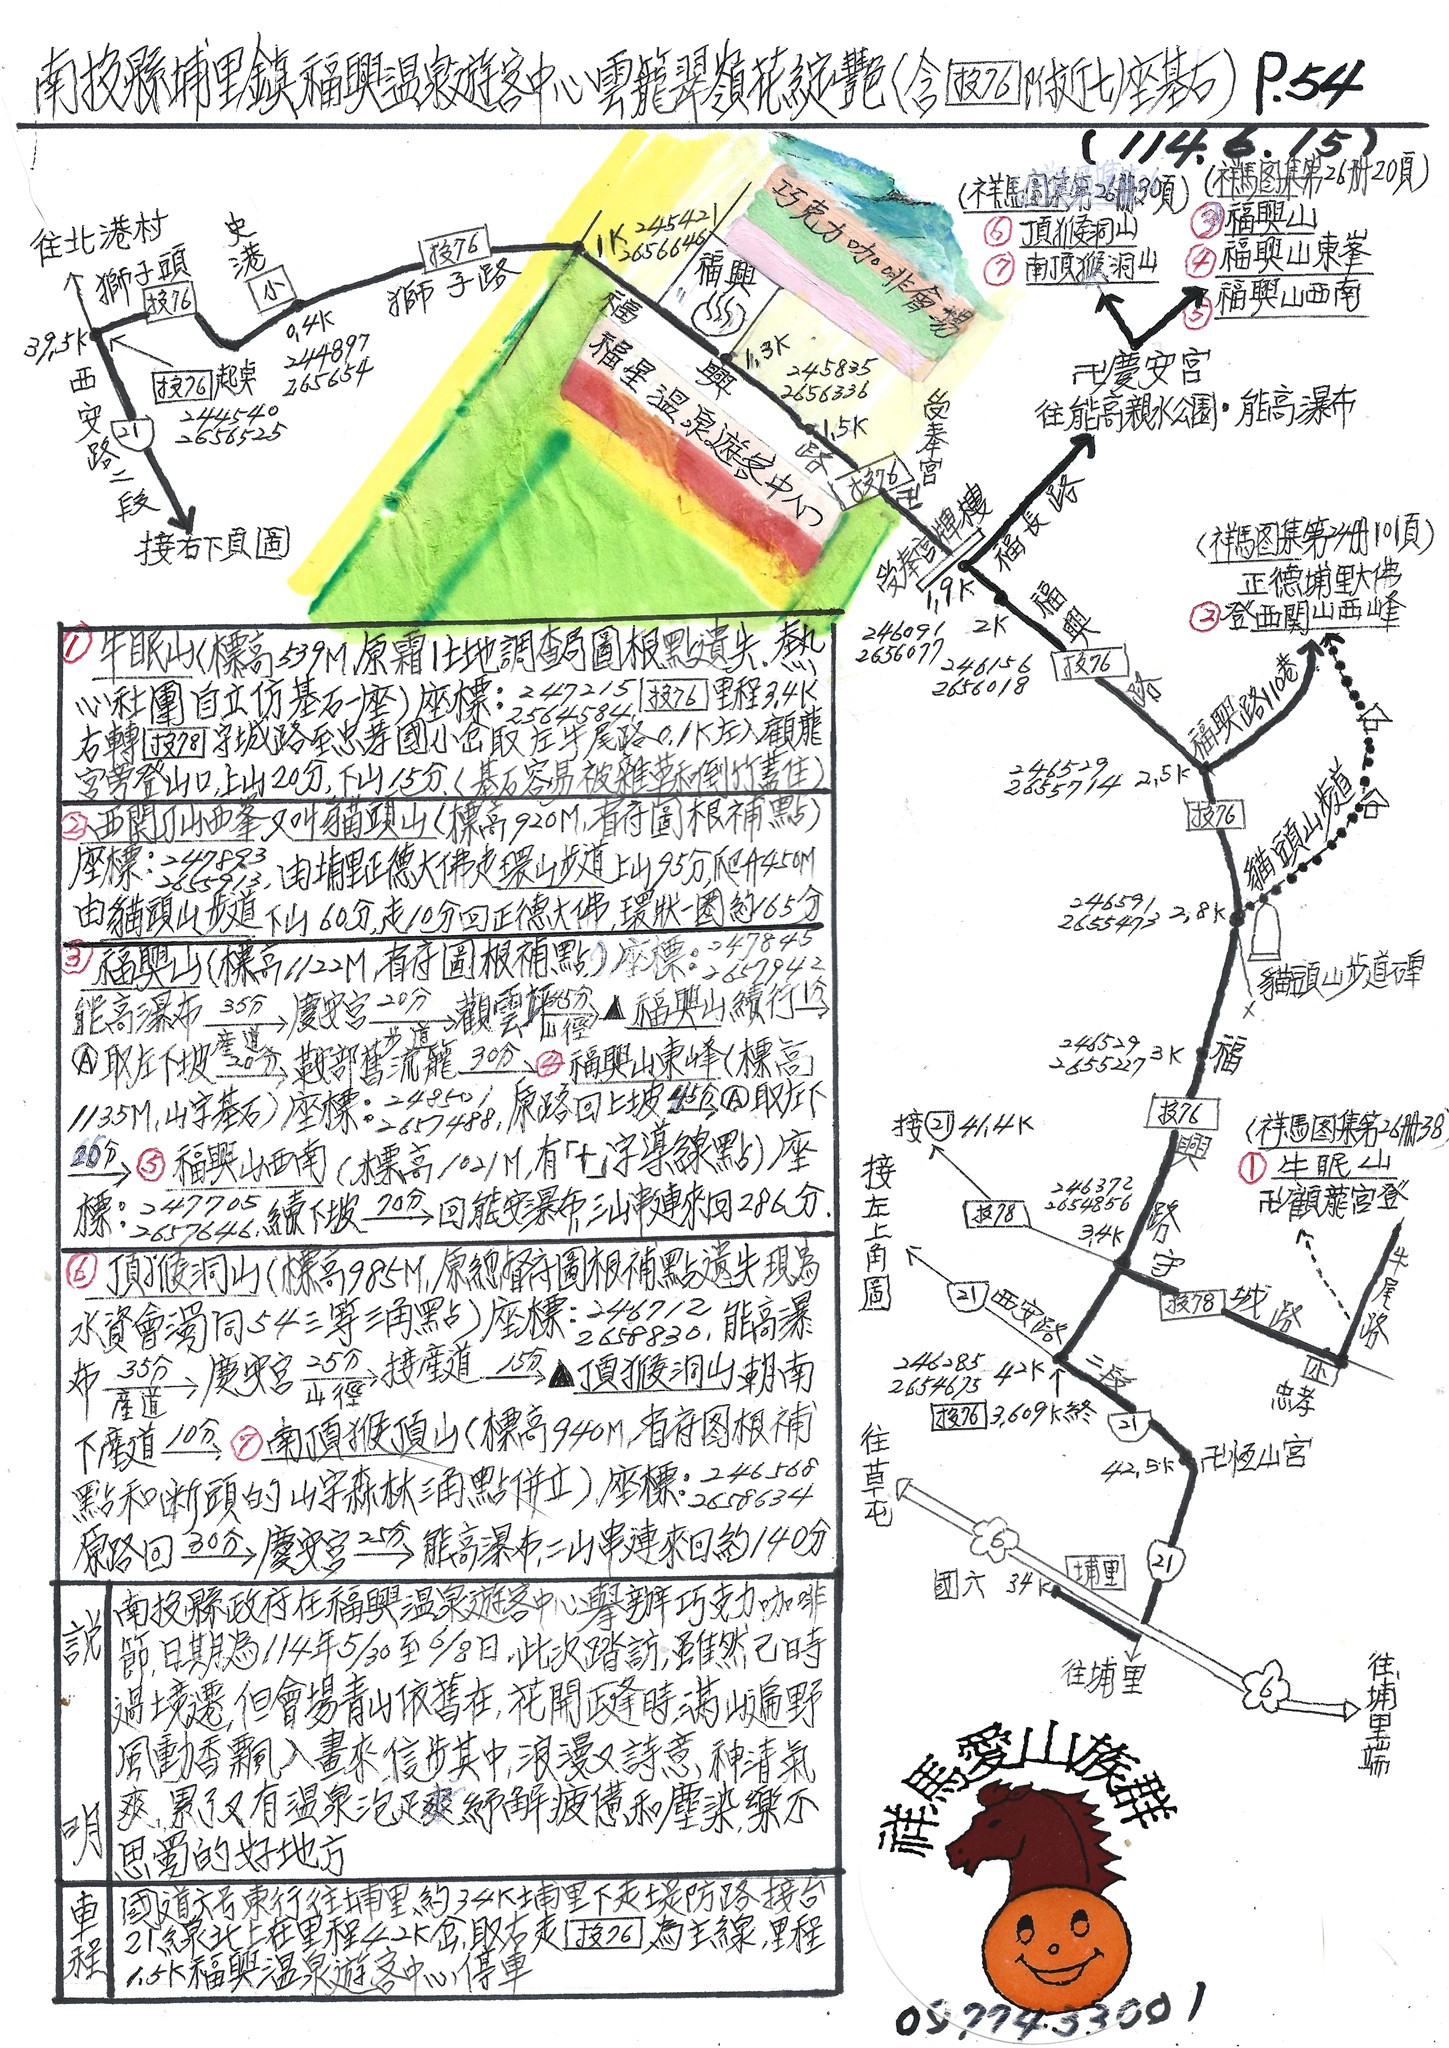 南投縣埔里鎮福興溫泉遊客中心雲龍翠嶺花綻艷(含投76附近七座基石) P.54
(114.6.15)
(祥馬图集第26册30頁)
⑥頂猴洞山
⑦南頂猴洞山
(祥馬图集第26册20頁)
③福興山
④福興山東峯
⑤福興山西南
卍慶安宮
往能高親水公園・能高瀑布
往北港村
獅子頭
投76
史港
小
0.4K
244897
265654
投76
獅子路
39.5K
投76起點
244540
2656525
西安路二段
21
接右下頁圖
1K
245421
2656646
福興
巧克力咖啡會場
福興路
福星溫泉遊客中心
1.3K
245835
2656336
1.5K
投76
卍
受奉宮
受奉宮牌樓
福長路
1.9K
246091
2656077
2K
246156
2656018
福興路
投76
(祥馬图集第24册101頁)
正德埔里大佛
②登西関山西峰
福興路110巷
246529
2655714
2.5K
投76
貓頭山步道
246591
2655473
2.8K
貓頭山步道碑
246529
2655227
3K
福興路
投76
接21 41.4K
投78
246372
2654856
3.4K
(祥馬图集第26册38
①牛眠山
卍顴龍宮登
守城路
投78
牛尾路
小
忠孝
接左上角圖
21
西安路二段
246285
2654675
42K
投76 3.609K終
21
42.5K
卍恆山宮
往草屯
6
國六 34K
埔里
21
往埔里
6
往埔里端
①牛眠山(標高539M,原霜1土地調查局圖根點遺失.熱
心社團自立仿基石一座)座標:247215 2564584 投76里程3.4K
右轉投78守城路至忠孝國小岔取左牛尾路0.1K左入顴龍
宮旁登山口,上山20分,下山15分.(基石容易被雜草和倒竹蓋住)
②西関刀山西峯又叫貓頭山(標高920M,省府圖根補點)
座標:247893 2655913,由埔里正德大佛走環山步道上山95分,爬升450M
由貓頭山步道下山60分,走10分回正德大佛,環狀一圈約165分
③福興山(標高1122M,省府圖根補點)座標:247845 2657942
能高瀑布35分產道→慶安宮20分步道→觀雲坪45分山徑→▲福興山續行1分→
Ⓐ取左下坡20分→鞍部舊流籠30分→④福興山東峰(標高
1135M,山字基石)座標:248501 2657488,原路回上坡45分→Ⓐ取左下
20分→⑤福興山西南(標高1021M,有「十」字導線點)座
標:247705 2657646.續下坡70分→回能安瀑布,三山串連來回286分.
⑥頂猴洞山(標高985M,原總督府圖根補點遺失現為
水資會濁同54三等三角點)座標:246712 2658830,能高瀑
布35分產道→慶安宮25分山徑→接產道15分→▲頂猴洞山朝南
下產道10分→⑦南頂猴頂山(標高940M,省府图根補
點和斷頭的山字森林三角點併立),座標:246568 2658634
原路回30分→慶安宮25分→能高瀑布,二山串連來回約140分
說明
南投縣政府在福興溫泉遊客中心舉辦巧克力咖啡
節,日期為114年5/30至6/8日.此次踏訪,雖然己時
過境遷,但會場青山依舊在,花開正逢時,滿山遍野
風動香飄入畫來,信步其中,浪漫又詩意,神清氣
爽,累了又有溫泉泡足爽紓解疲憊和塵染,樂不
思蜀的好地方
車程
國道六号東行往埔里約34K埔里下走堤防路接台
21線北上在里程42K岔,取右走投76為主線,里程
1.5K福興溫泉遊客中心停車
祥馬愛山族群
0977433001